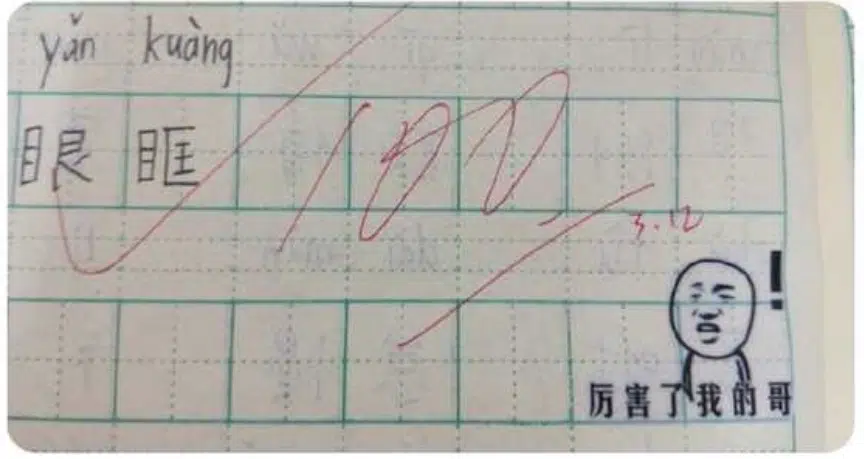 yǎn kuàng
眼 眶
100
3.12
!
厉害了我的哥